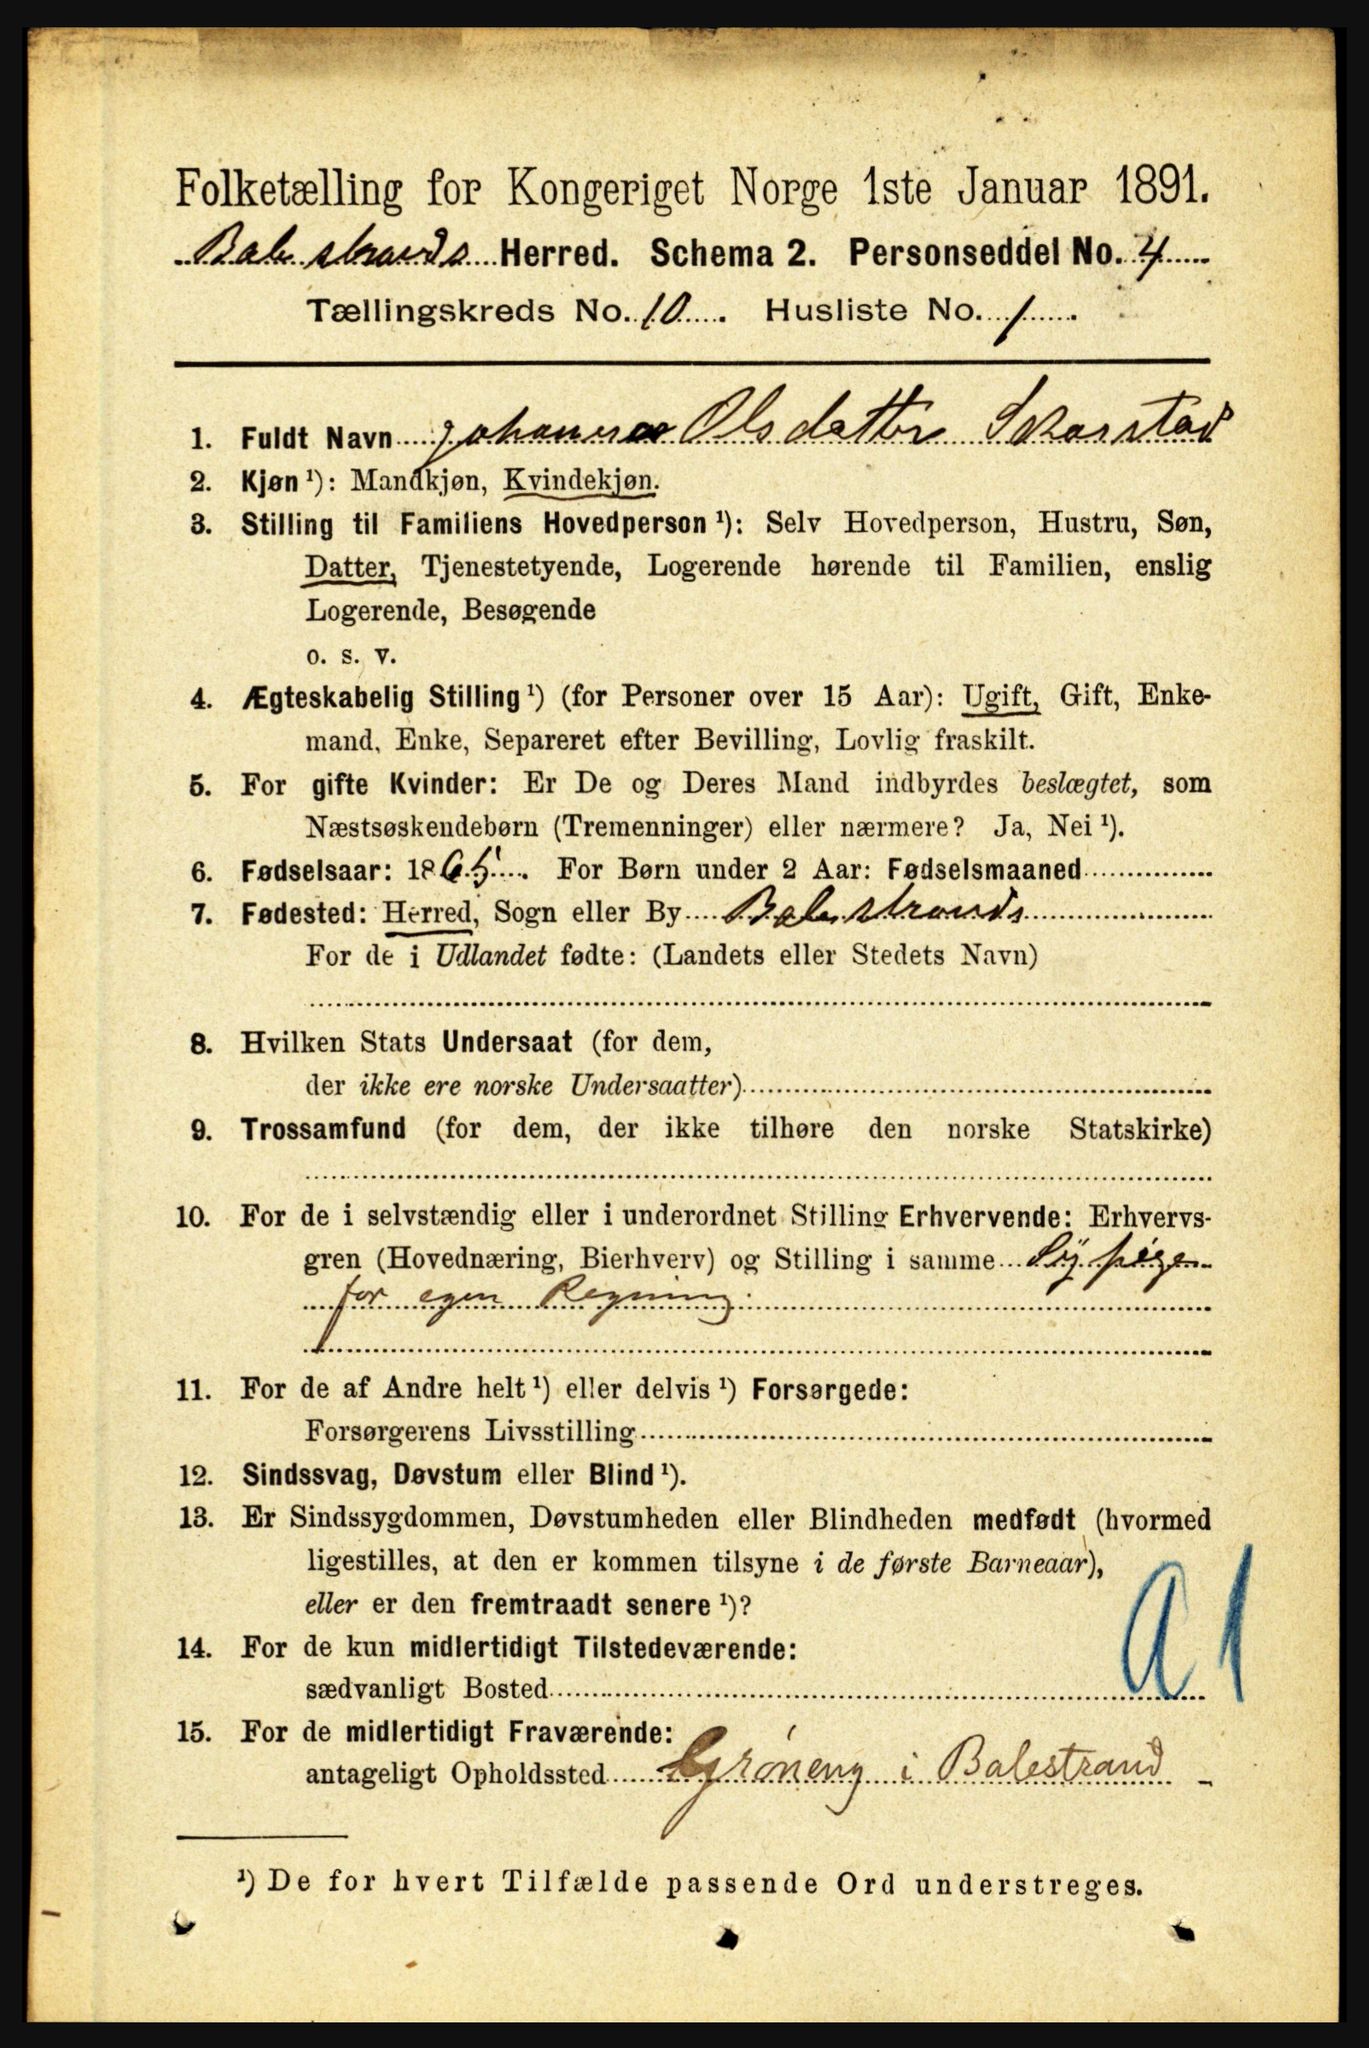 Folketælling for Kongeriget Norge 1ste Januar 1891.
Balestrands Herred. Schema 2. Personseddel No. 4
Tællingskreds No. 10. Husliste No. 1.
1. Fuldt Navn Johanna Olsdatter Skarstad
2. Kjøn ¹): Mandkjøn, Kvindekjøn.
3. Stilling til Familiens Hovedperson ¹): Selv Hovedperson, Hustru, Søn,
Datter, Tjenestetyende, Logerende hørende til Familien, enslig
Logerende, Besøgende
o. s. v.
4. Ægteskabelig Stilling ¹) (for Personer over 15 Aar): Ugift, Gift, Enke-
mand, Enke, Separeret efter Bevilling, Lovlig fraskilt.
5. For gifte Kvinder: Er De og Deres Mand indbyrdes beslægtet, som
Næstsøskendebørn (Tremenninger) eller nærmere? Ja, Nei ¹).
6. Fødselsaar: 1865. For Børn under 2 Aar: Fødselsmaaned
7. Fødested: Herred, Sogn eller By Balestrands
For de i Udlandet fødte: (Landets eller Stedets Navn)
8. Hvilken Stats Undersaat (for dem,
der ikke ere norske Undersaatter)
9. Trossamfund (for dem, der ikke tilhøre den norske Statskirke)
10. For de i selvstændig eller i underordnet Stilling Erhvervende: Erhvervs-
gren (Hovednæring, Bierhverv) og Stilling i samme Sypige
for egen Regning.
11. For de af Andre helt ¹) eller delvis ¹) Forsørgede:
Forsørgerens Livsstilling
12. Sindssvag, Døvstum eller Blind ¹).
13. Er Sindssygdommen, Døvstumheden eller Blindheden medfødt (hvormed
ligestilles, at den er kommen tilsyne i de første Barneaar),
eller er den fremtraadt senere ¹)?
14. For de kun midlertidigt Tilstedeværende:
sædvanligt Bosted
a 1
15. For de midlertidigt Fraværende:
antageligt Opholdssted Grøneng i Balestrand
¹) De for hvert Tilfælde passende Ord understreges.